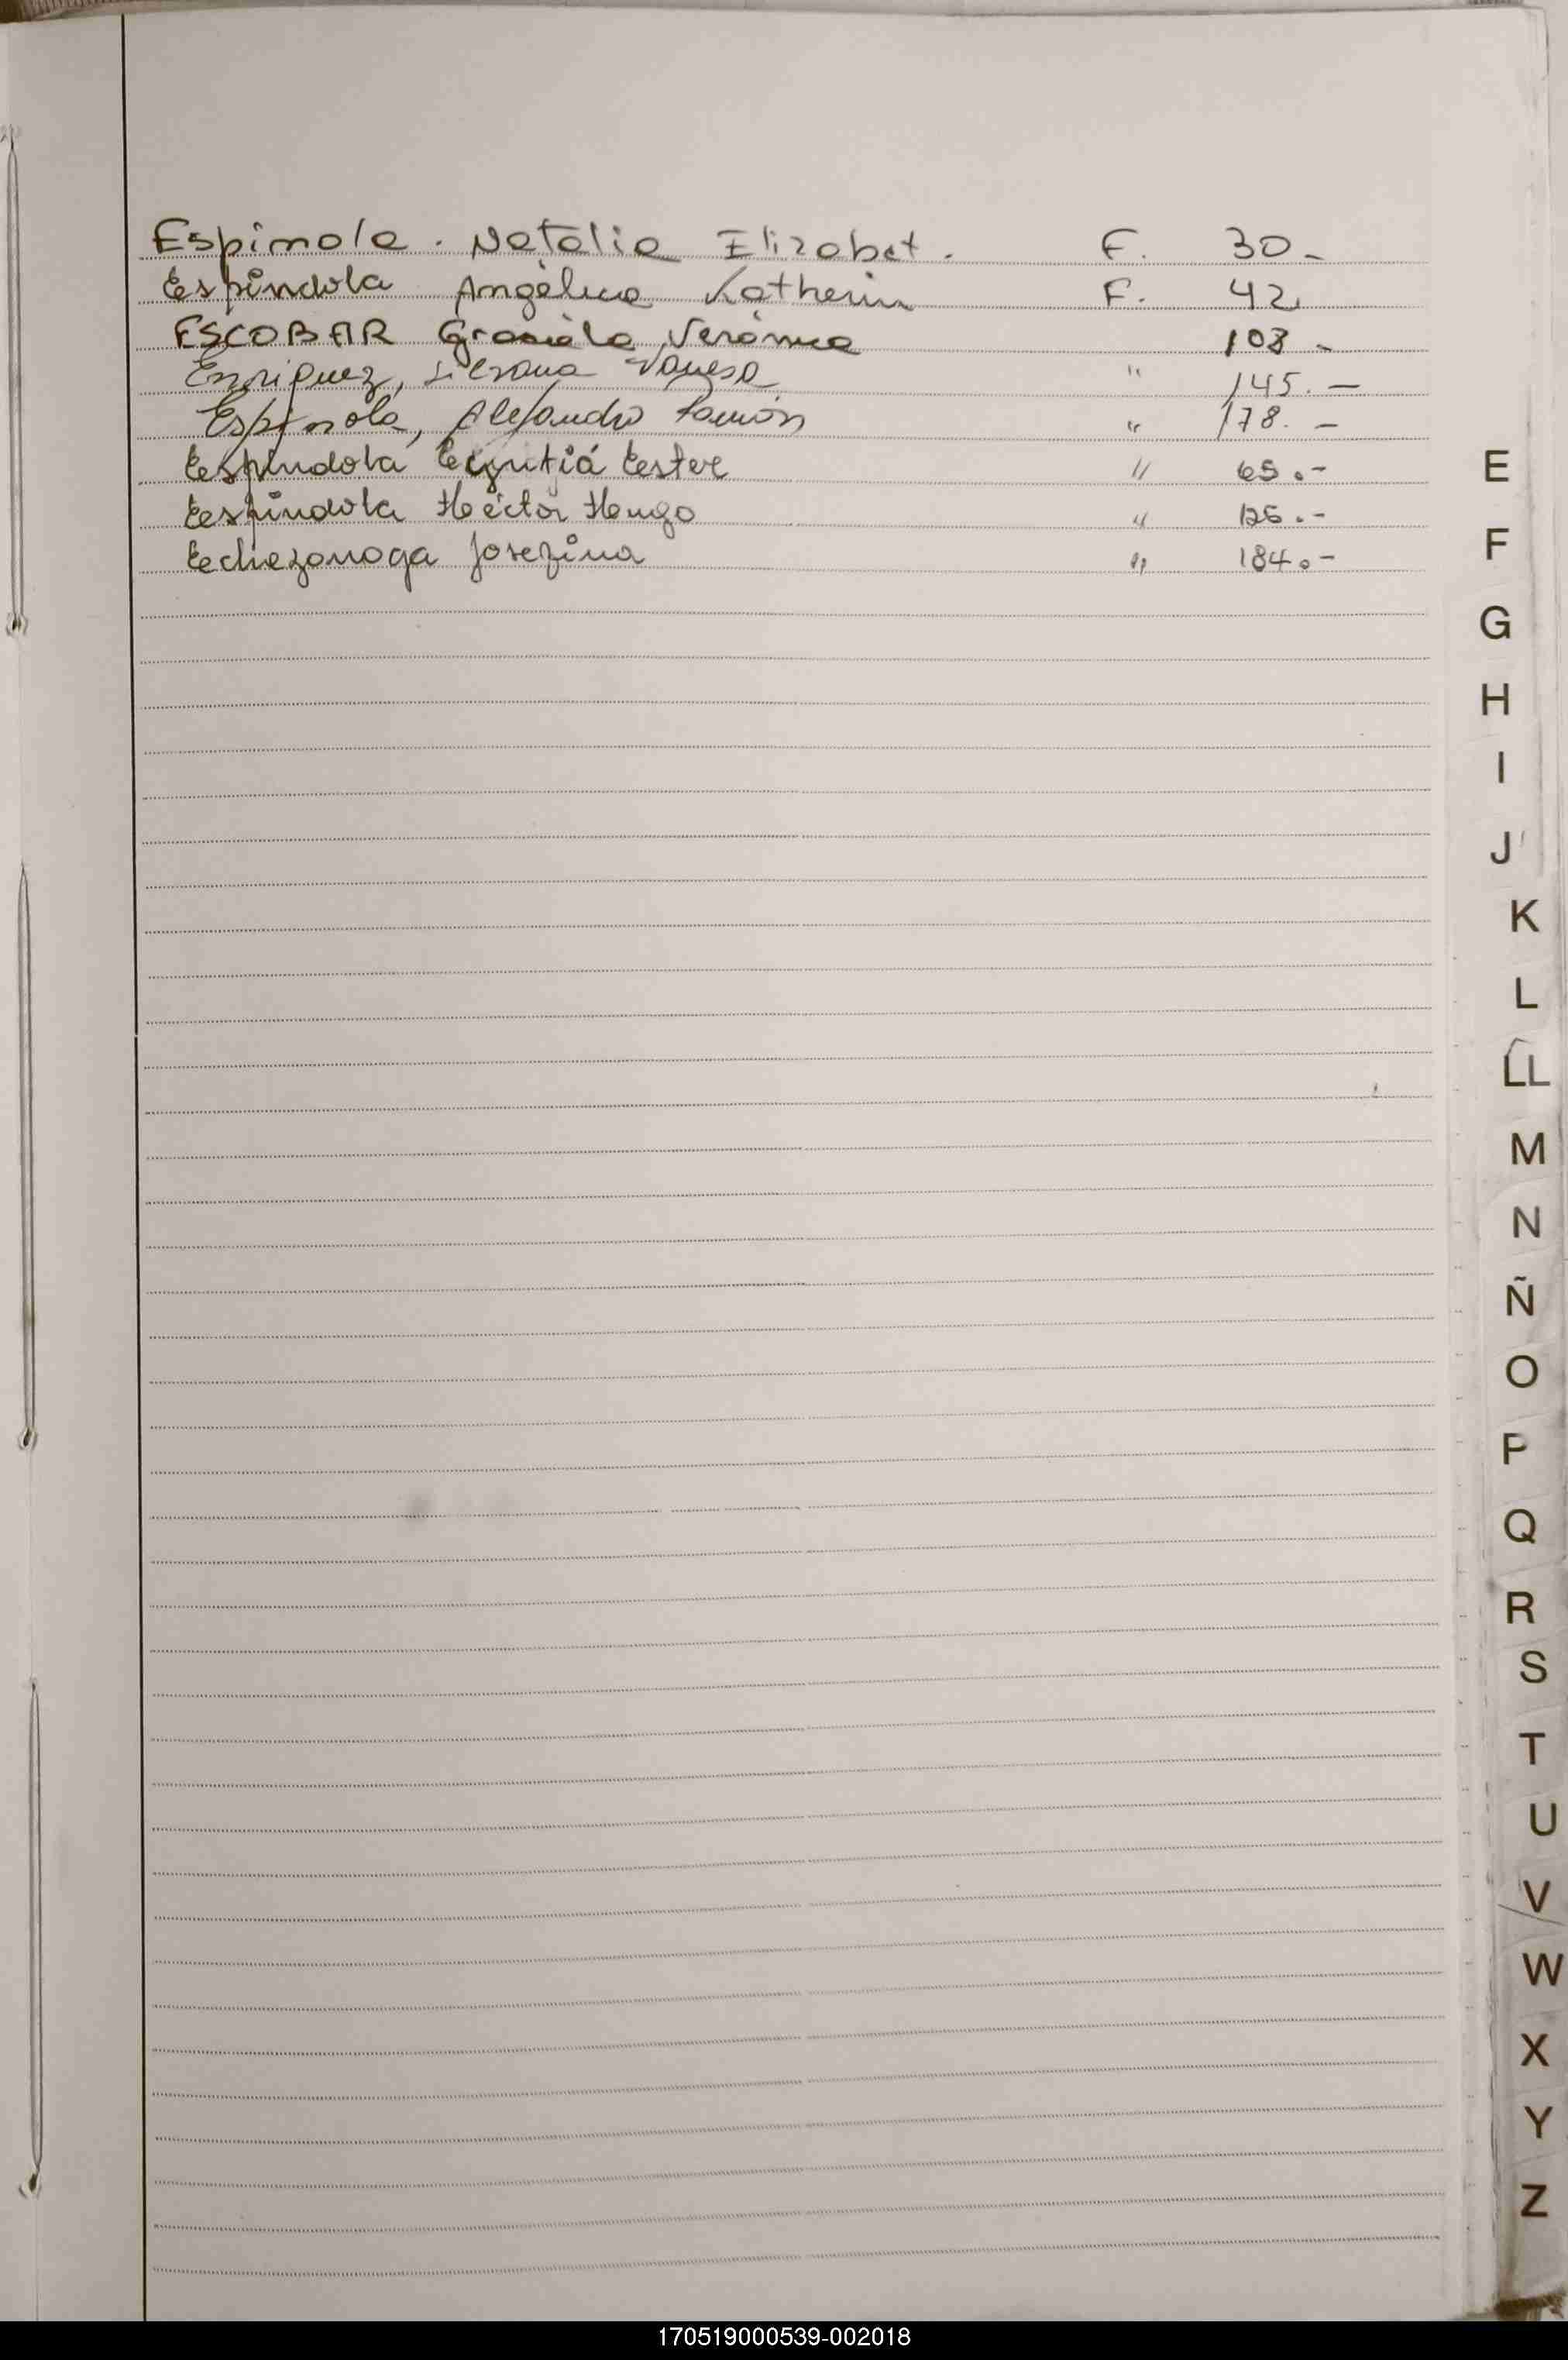 Espinola. Natalia Elizabet. F. 30.-
Espíndola Angélica Katherin F. 42
ESCOBAR Graciela Verónica 108 -
Enriquez, Silvana Vanesa " 145.-
Espínola, Alejandro Ramón " 178.-
Espíndola Ester " 65.-
Espíndola Héctor Hugo " 126.-
Echezonoga Josefina " 184.-
E
F
G
H
I
J
K
L
LL
M
N
Ñ
O
P
Q
R
S
T
U
V
W
X
Y
Z
170519000539-002018